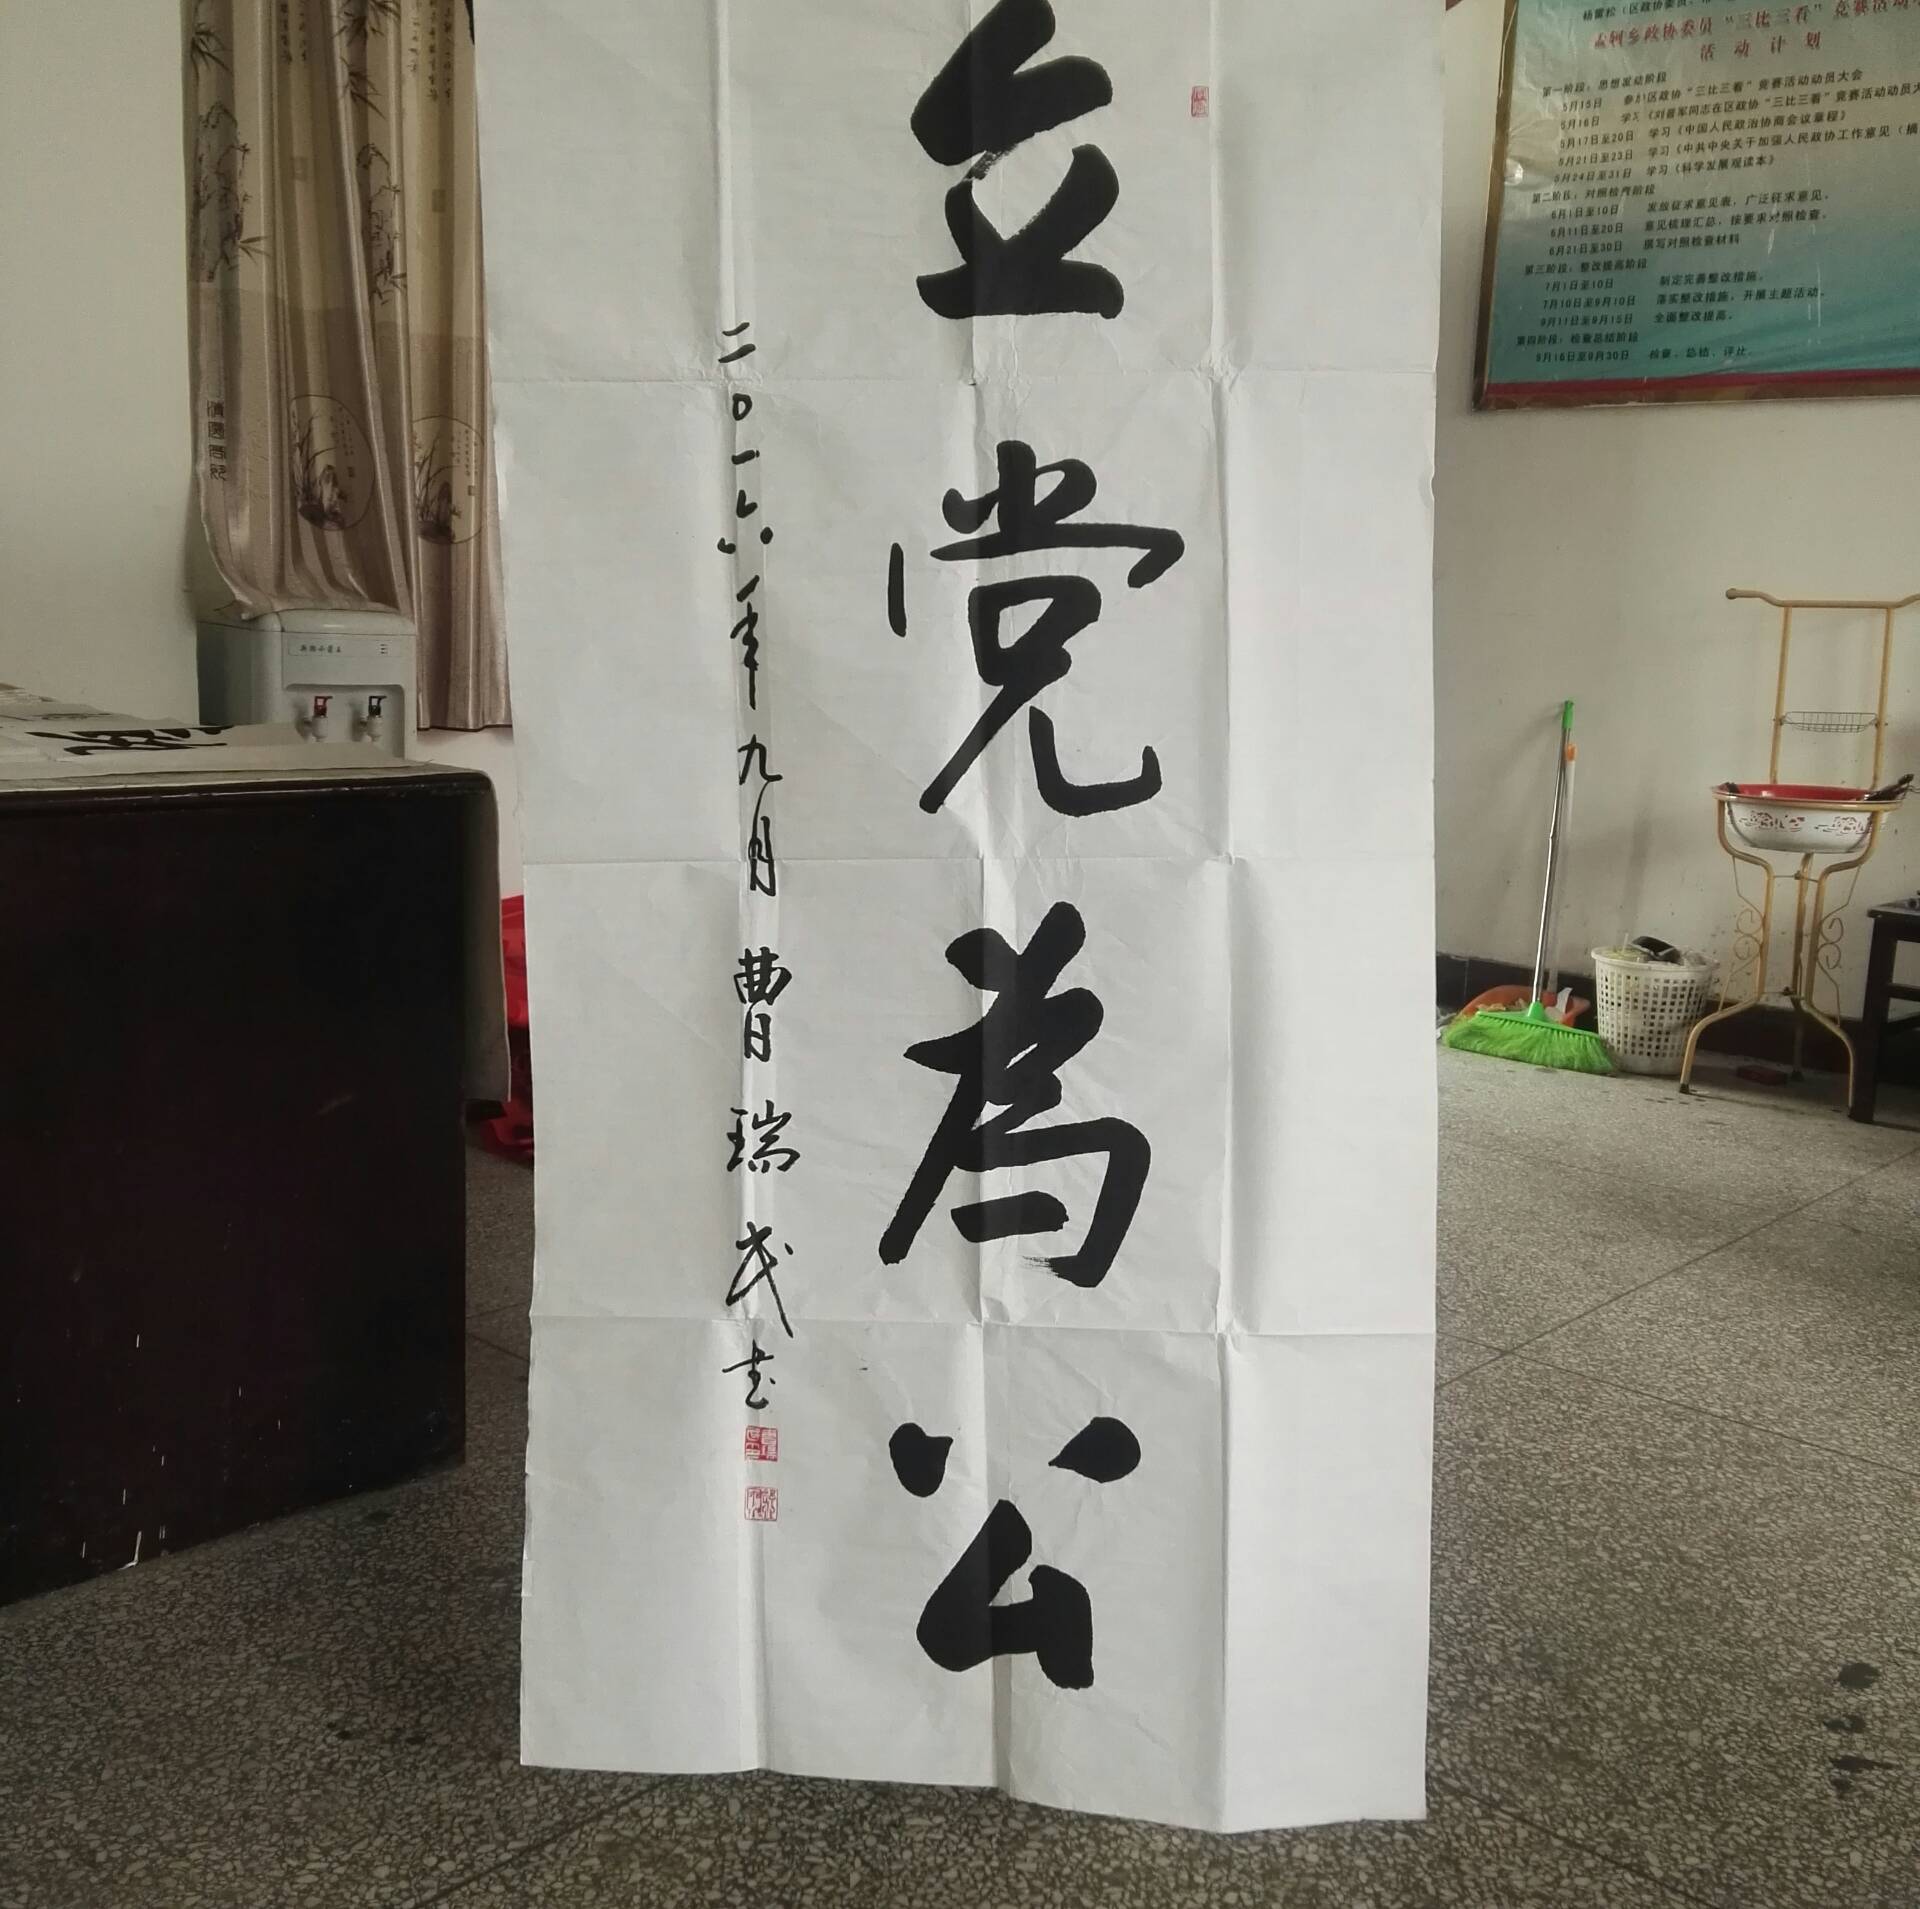 立党为公
二〇一六年九月 曹瑞民书
孟轲乡政协委员“三比三看”竞赛活动
活动计划
第一阶段：思想发动阶段
5月15日 参加区政协“三比三看”竞赛活动动员大会
5月16日 学习《刘普军同志在区政协“三比三看”竞赛活动动员大
5月17日至20日 学习《中国人民政治协商会议章程》
5月21日至23日 学习《中共中央关于加强人民政协工作意见（摘
5月24日至31日 学习《科学发展观读本》
第二阶段：对照检查阶段
6月1日至10日 发放征求意见表，广泛征求意见。
6月11日至20日 意见梳理汇总，按要求对照检查。
6月21日至30日 撰写对照检查材料
第三阶段：整改提高阶段
7月1日至10日 制定完善整改措施。
7月10日至9月10日 落实整改措施，开展主题活动。
9月11日至9月15日 全面整改提高。
第四阶段：检查总结阶段
9月16日至9月30日 检查、总结、评比。